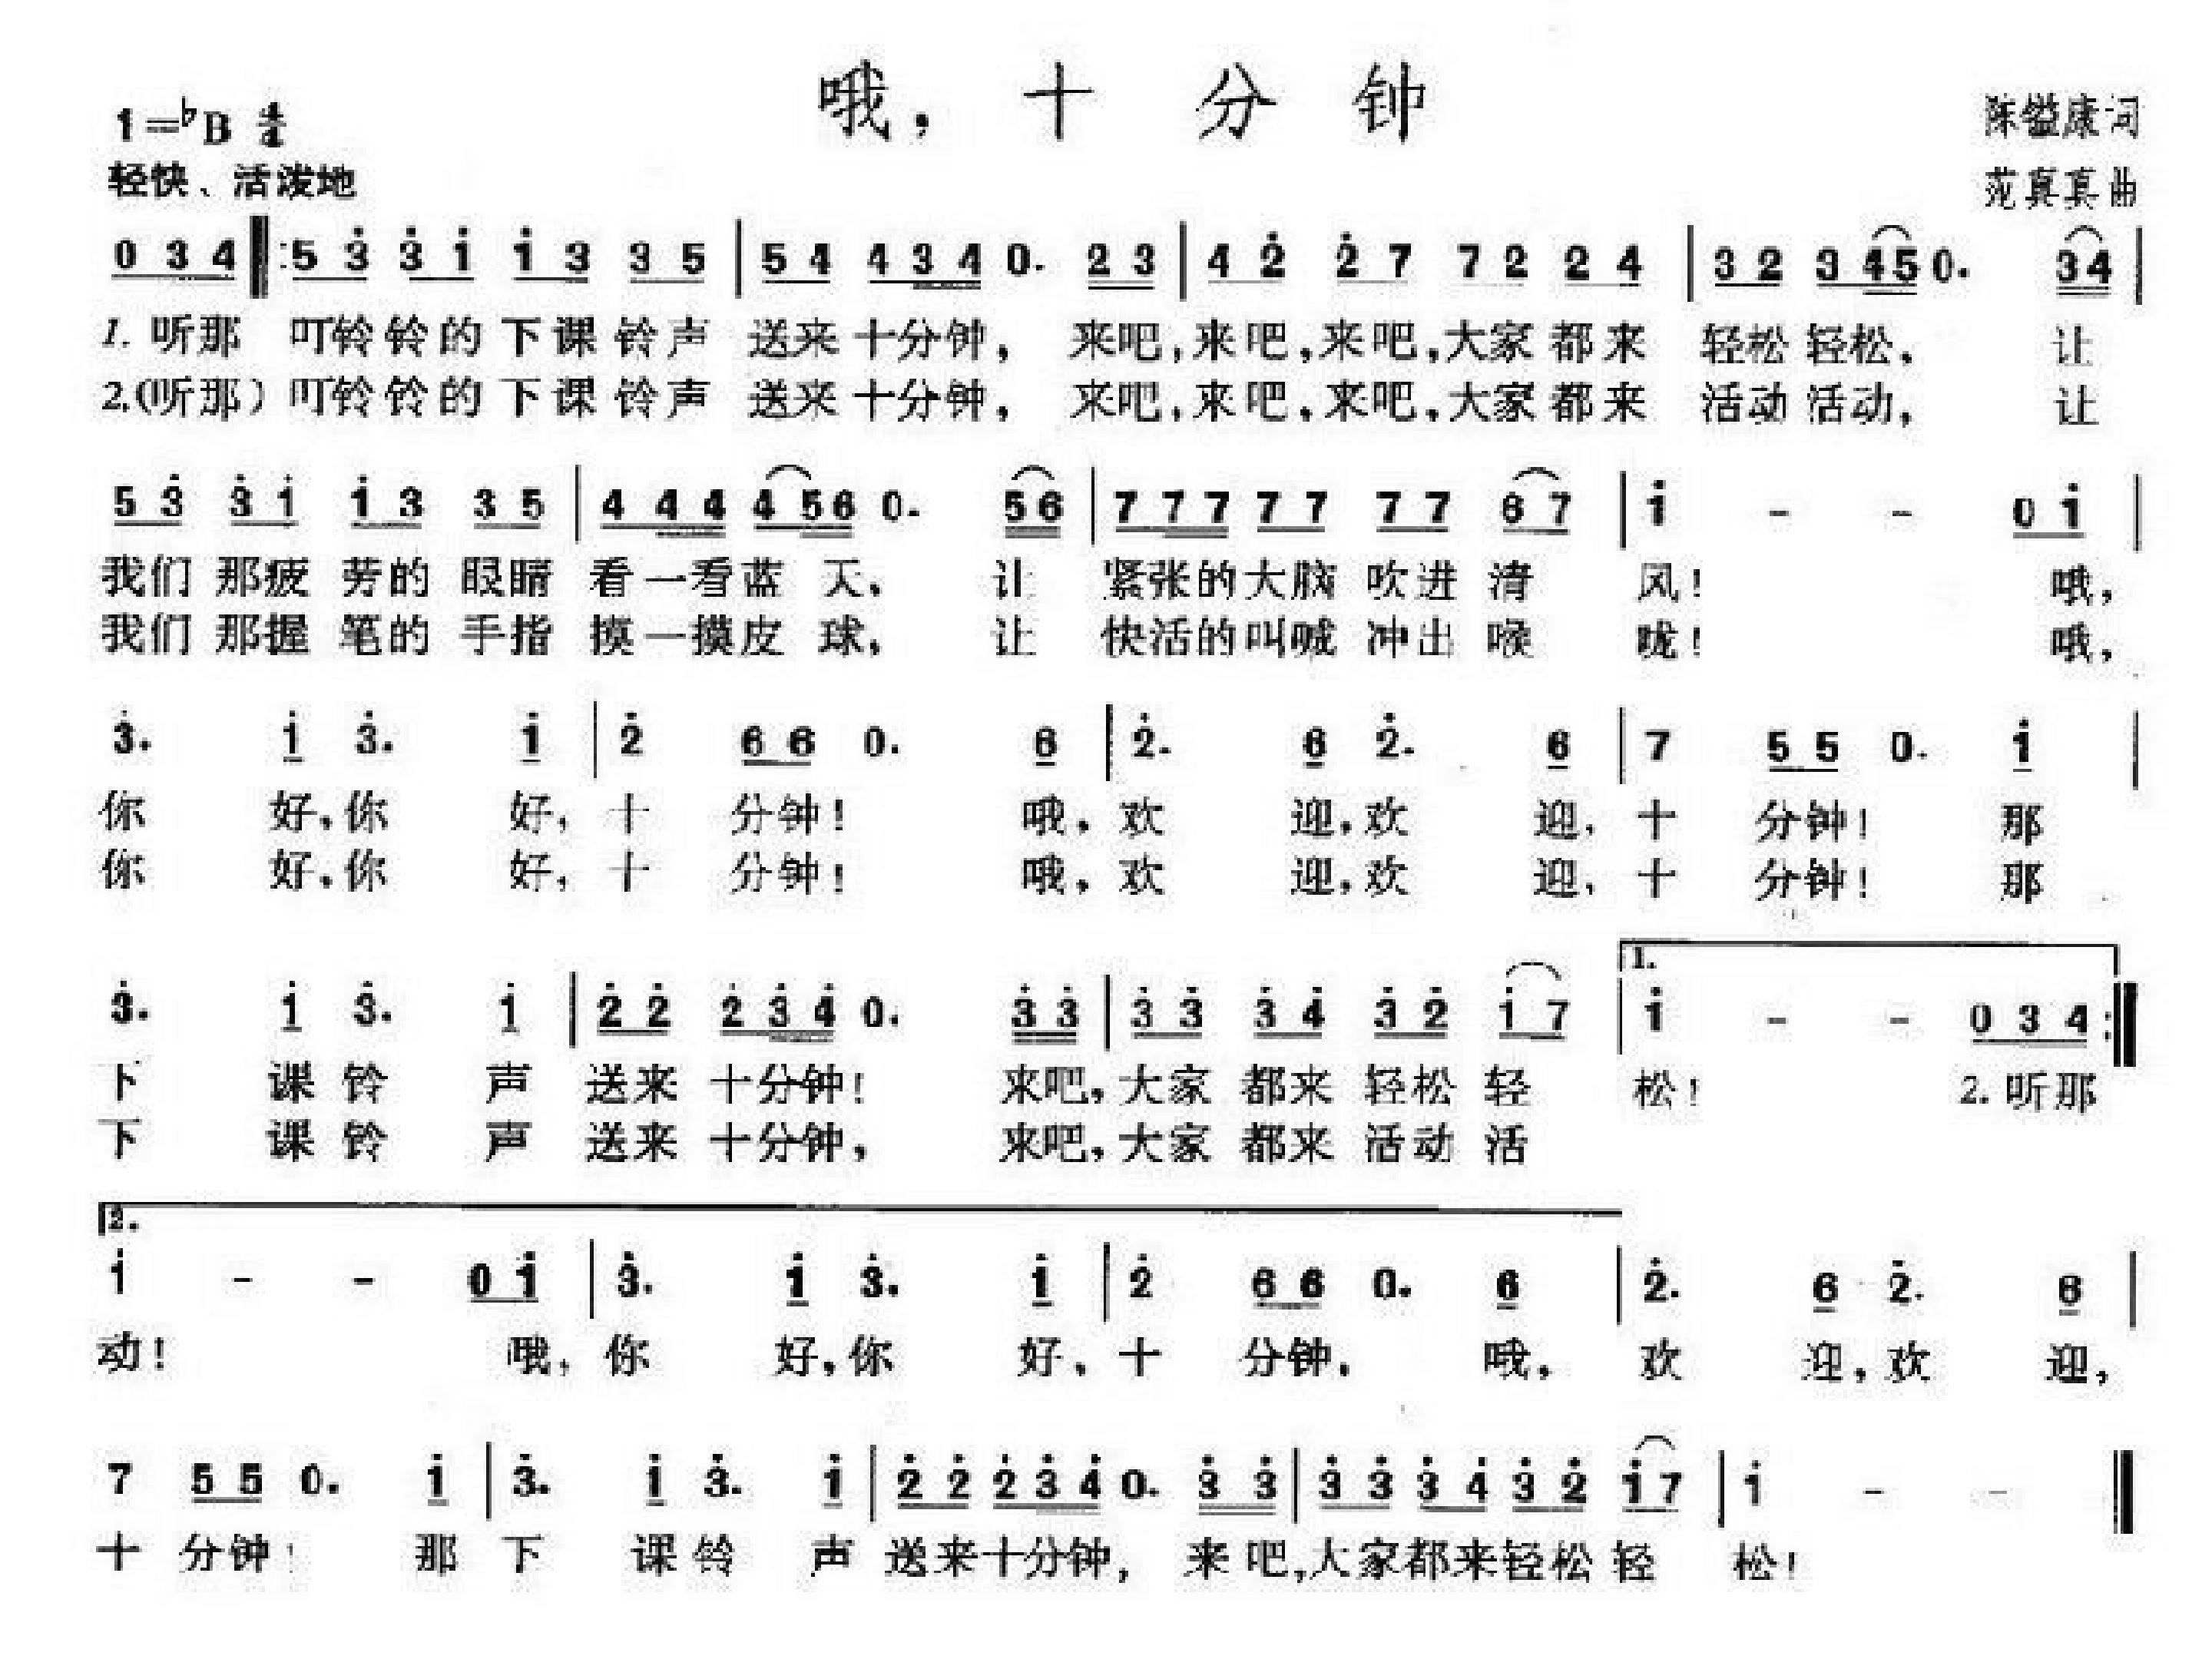 哦，十分钟
1=♭B 4/4
陈镒康词
轻快、活泼地
范真真曲
0 3 4 ‖: 5 3̇ 3̇ 1̇ 1̇ 3 3 5 | 5 4 4 3 4 0. 2 3 | 4 2̇ 2̇ 7 7 2 2 4 | 3 2 3 4 5 0. 3 4 |
1. 听那 叮铃铃的下课铃声 送来十分钟， 来吧，来吧，来吧，大家都来 轻松轻松， 让
2.(听那) 叮铃铃的下课铃声 送来十分钟， 来吧，来吧，来吧，大家都来 活动活动， 让
5 3̇ 3̇ 1̇ 1̇ 3 3 5 | 4 4 4 4 5 6 0. 5 6 | 7 7 7 7 7 7 7 6 7 | 1̇ - - 0 1̇ |
我们那疲劳的眼睛 看一看蓝天， 让 紧张的大脑吹进清 风！ 哦，
我们那握笔的手指 摸一摸皮球， 让 快活的叫喊冲出喉 咙！ 哦，
3̇. 1̇ 3̇. 1̇ | 2̇ 6 6 0. 6 | 2̇. 6 2̇. 6 | 7 5 5 0. 1̇ |
你 好，你 好，十 分钟！ 哦，欢 迎，欢 迎，十 分钟！ 那
你 好，你 好，十 分钟！ 哦，欢 迎，欢 迎，十 分钟！ 那
1.
3̇. 1̇ 3̇. 1̇ | 2̇ 2̇ 2̇ 3̇ 4̇ 0. 3̇ 3̇ | 3̇ 3̇ 3̇ 4̇ 3̇ 2̇ 1̇ 7 | 1̇ - - 0 3 4 :‖
下 课铃 声 送来十分钟！ 来吧，大家都来轻松轻 松！ 2.听那
下 课铃 声 送来十分钟， 来吧，大家都来活动活
2.
1̇ - - 0 1̇ | 3̇. 1̇ 3̇. 1̇ | 2̇ 6 6 0. 6 | 2̇. 6 2̇. 6 |
动！ 哦，你 好，你 好，十 分钟， 哦， 欢 迎，欢 迎，
7 5 5 0. 1̇ | 3̇. 1̇ 3̇. 1̇ | 2̇ 2̇ 2̇ 3̇ 4̇ 0. 3̇ 3̇ | 3̇ 3̇ 3̇ 4̇ 3̇ 2̇ 1̇ 7 | 1̇ - - ‖
十 分钟！ 那 下 课铃 声 送来十分钟， 来吧，大家都来轻松轻 松！